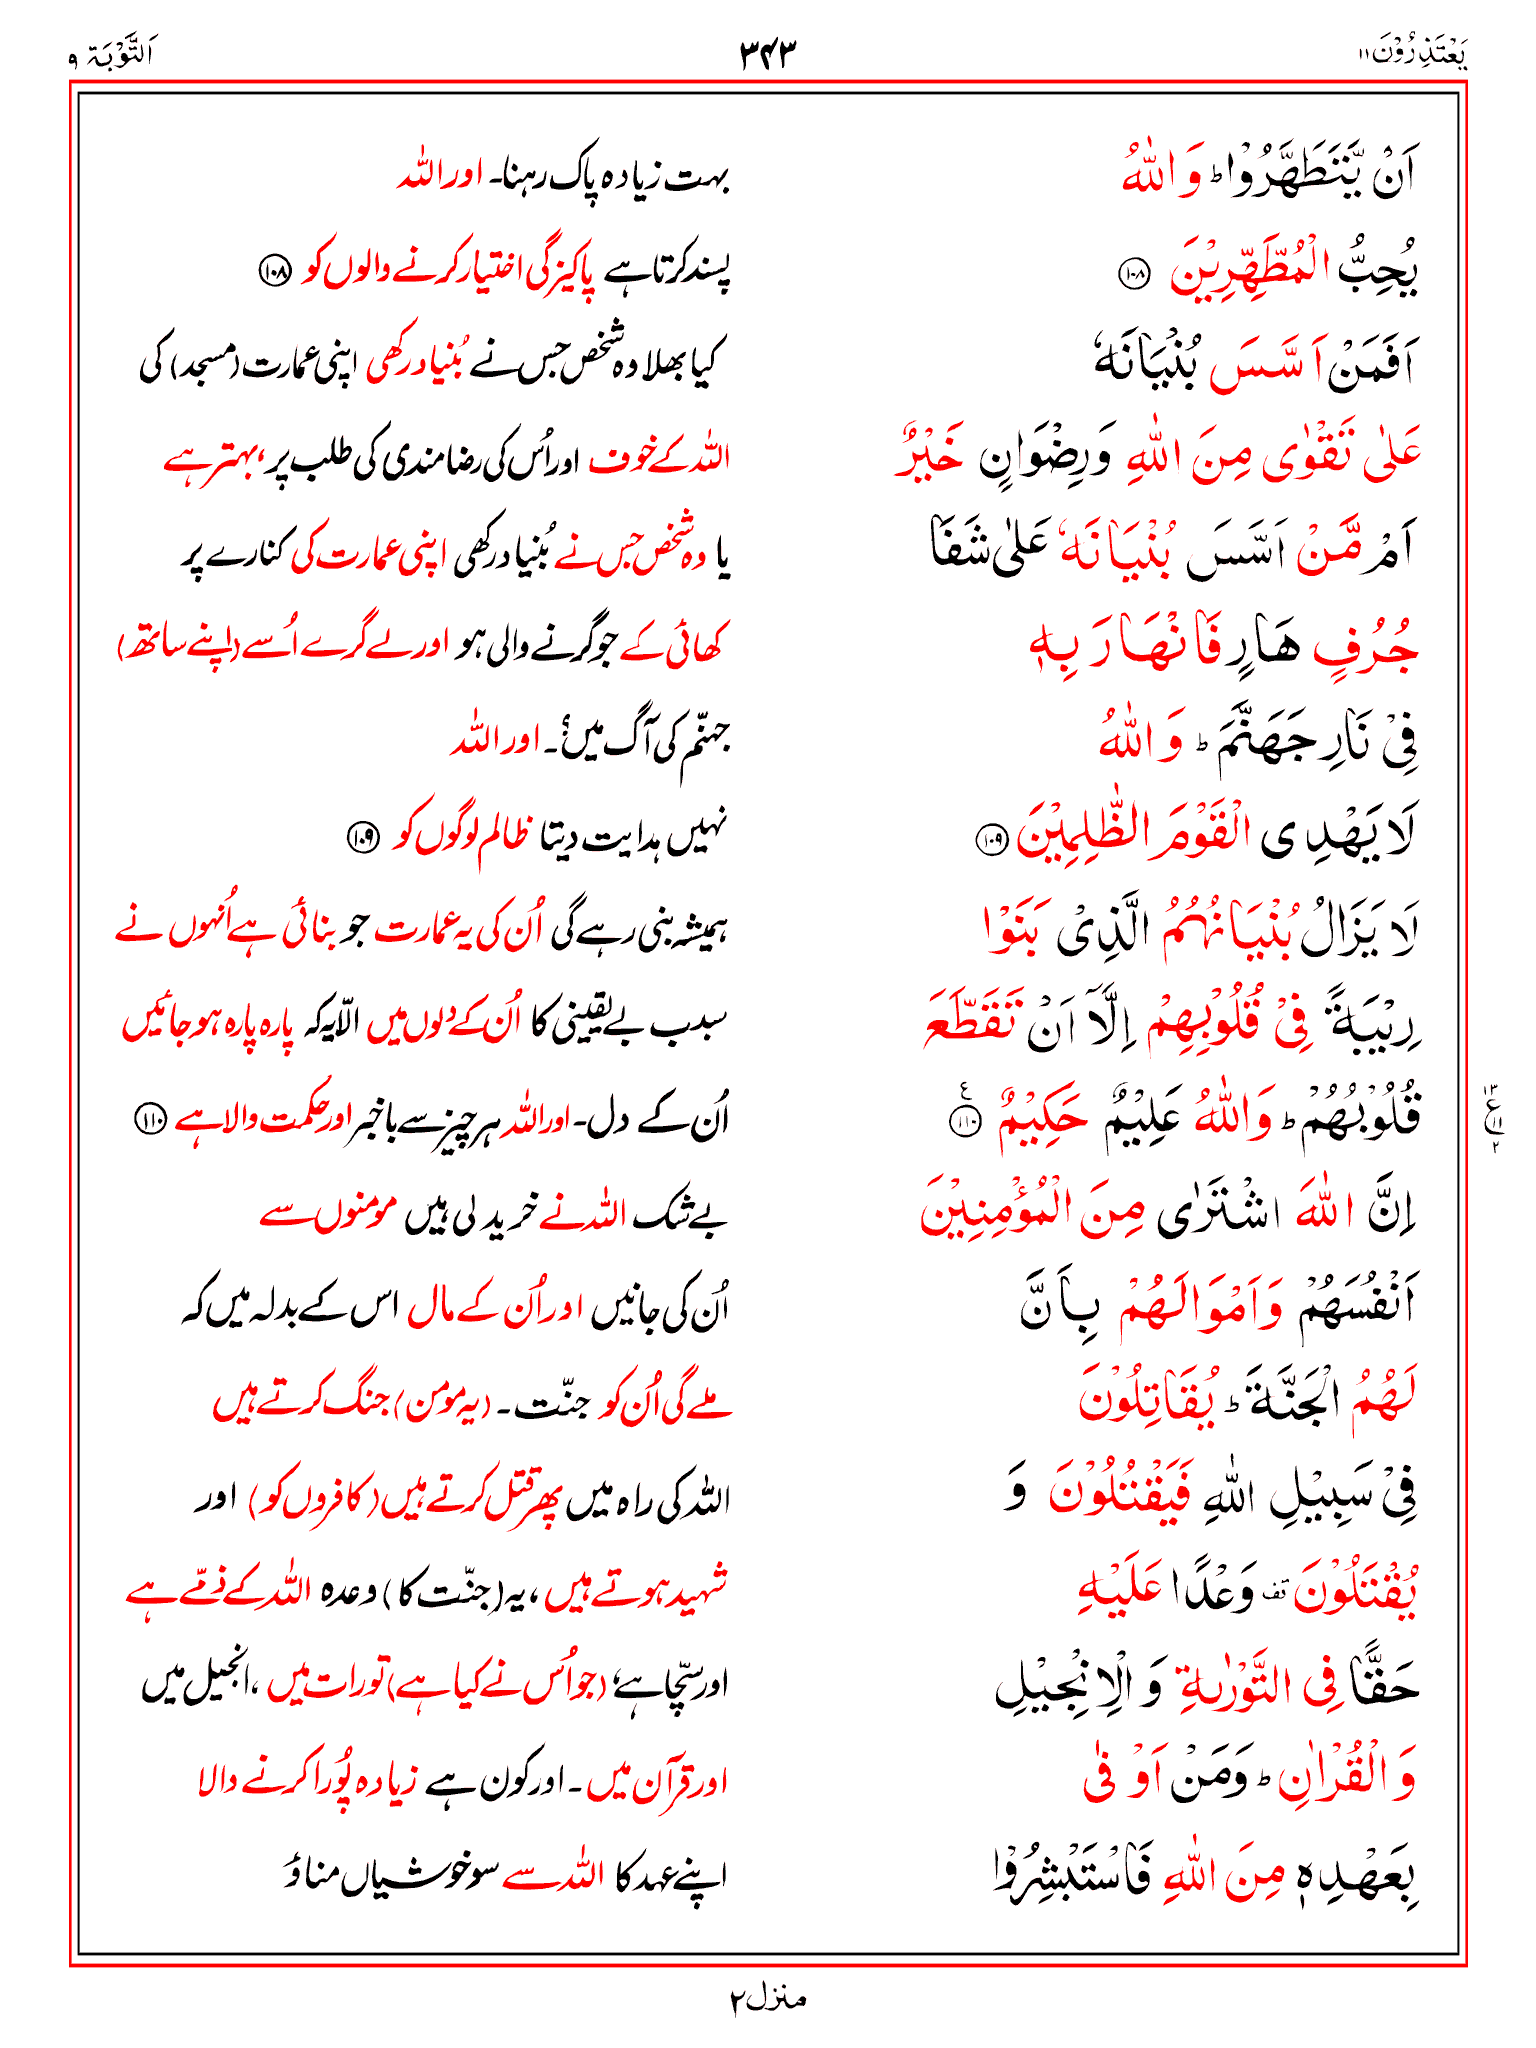 یَعْتَذِرُوْنَ۱۱ ۳۴۳ اَلتَّوْبَۃ ۹
اَنْ یَّتَطَهَّرُوْا ؕ وَ اللّٰهُ بہت زیادہ پاک رہنا۔ اور اللہ
یُحِبُّ الْمُطَّهِّرِیْنَ ﴿۱۰۸﴾ پسند کرتا ہے پاکیزگی اختیار کرنے والوں کو ﴿۱۰۸﴾
اَفَمَنْ اَسَّسَ بُنْیَانَهٗ کیا بھلا وہ شخص جس نے بُنیاد رکھی اپنی عمارت (مسجد) کی
عَلٰی تَقْوٰی مِنَ اللّٰهِ وَرِضْوَانٍ خَیْرٌ اللہ کے خوف اور اُس کی رضا مندی کی طلب پر، بہتر ہے
اَمْ مَّنْ اَسَّسَ بُنْیَانَهٗ عَلٰی شَفَا یا وہ شخص جس نے بُنیاد رکھی اپنی عمارت کی کنارے پر
جُرُفٍ هَارٍ فَانْهَارَ بِهٖ کھائی کے جو گرنے والی ہو اور لے گرے اُسے (اپنے ساتھ)
فِیْ نَارِ جَهَنَّمَ ؕ وَ اللّٰهُ جہنّم کی آگ میں؟۔ اور اللہ
لَا یَهْدِی الْقَوْمَ الظّٰلِمِیْنَ ﴿۱۰۹﴾ نہیں ہدایت دیتا ظالم لوگوں کو ﴿۱۰۹﴾
لَا یَزَالُ بُنْیَانُهُمُ الَّذِیْ بَنَوْا ہمیشہ بنی رہے گی اُن کی یہ عمارت جو بنائی ہے اُنہوں نے
رِیْبَةً فِیْ قُلُوْبِهِمْ اِلَّاۤ اَنْ تَقَطَّعَ سبب بے یقینی کا اُن کے دلوں میں الّا یہ کہ پارہ پارہ ہو جائیں
قُلُوْبُهُمْ ؕ وَ اللّٰهُ عَلِیْمٌ حَكِیْمٌ ﴿۱۱۰﴾ اُن کے دل۔ اور اللہ ہر چیز سے باخبر اور حکمت والا ہے ﴿۱۱۰﴾
۱۳ ع ۱۱ ۲
اِنَّ اللّٰهَ اشْتَرٰی مِنَ الْمُؤْمِنِیْنَ بے شک اللہ نے خرید لی ہیں مومنوں سے
اَنْفُسَهُمْ وَاَمْوَالَهُمْ بِاَنَّ اُن کی جانیں اور اُن کے مال اس کے بدلہ میں کہ
لَهُمُ الْجَنَّةَ ؕ یُقَاتِلُوْنَ ملے گی اُن کو جنّت۔ (یہ مومن) جنگ کرتے ہیں
فِیْ سَبِیْلِ اللّٰهِ فَیَقْتُلُوْنَ وَ اللہ کی راہ میں پھر قتل کرتے ہیں (کافروں کو) اور
یُقْتَلُوْنَ قف وَعْدًا عَلَیْهِ شہید ہوتے ہیں، یہ (جنّت کا) وعدہ اللہ کے ذمّے ہے
حَقًّا فِی التَّوْرٰىةِ وَ الْاِنْجِیْلِ اور سچّا ہے، (جو اُس نے کیا ہے) تورات میں، انجیل میں
وَ الْقُرْاٰنِ ؕ وَمَنْ اَوْفٰی اور قرآن میں۔ اور کون ہے زیادہ پُورا کرنے والا
بِعَهْدِهٖ مِنَ اللّٰهِ فَاسْتَبْشِرُوْا اپنے عہد کا اللہ سے سو خوشیاں مناؤ
منزل۲